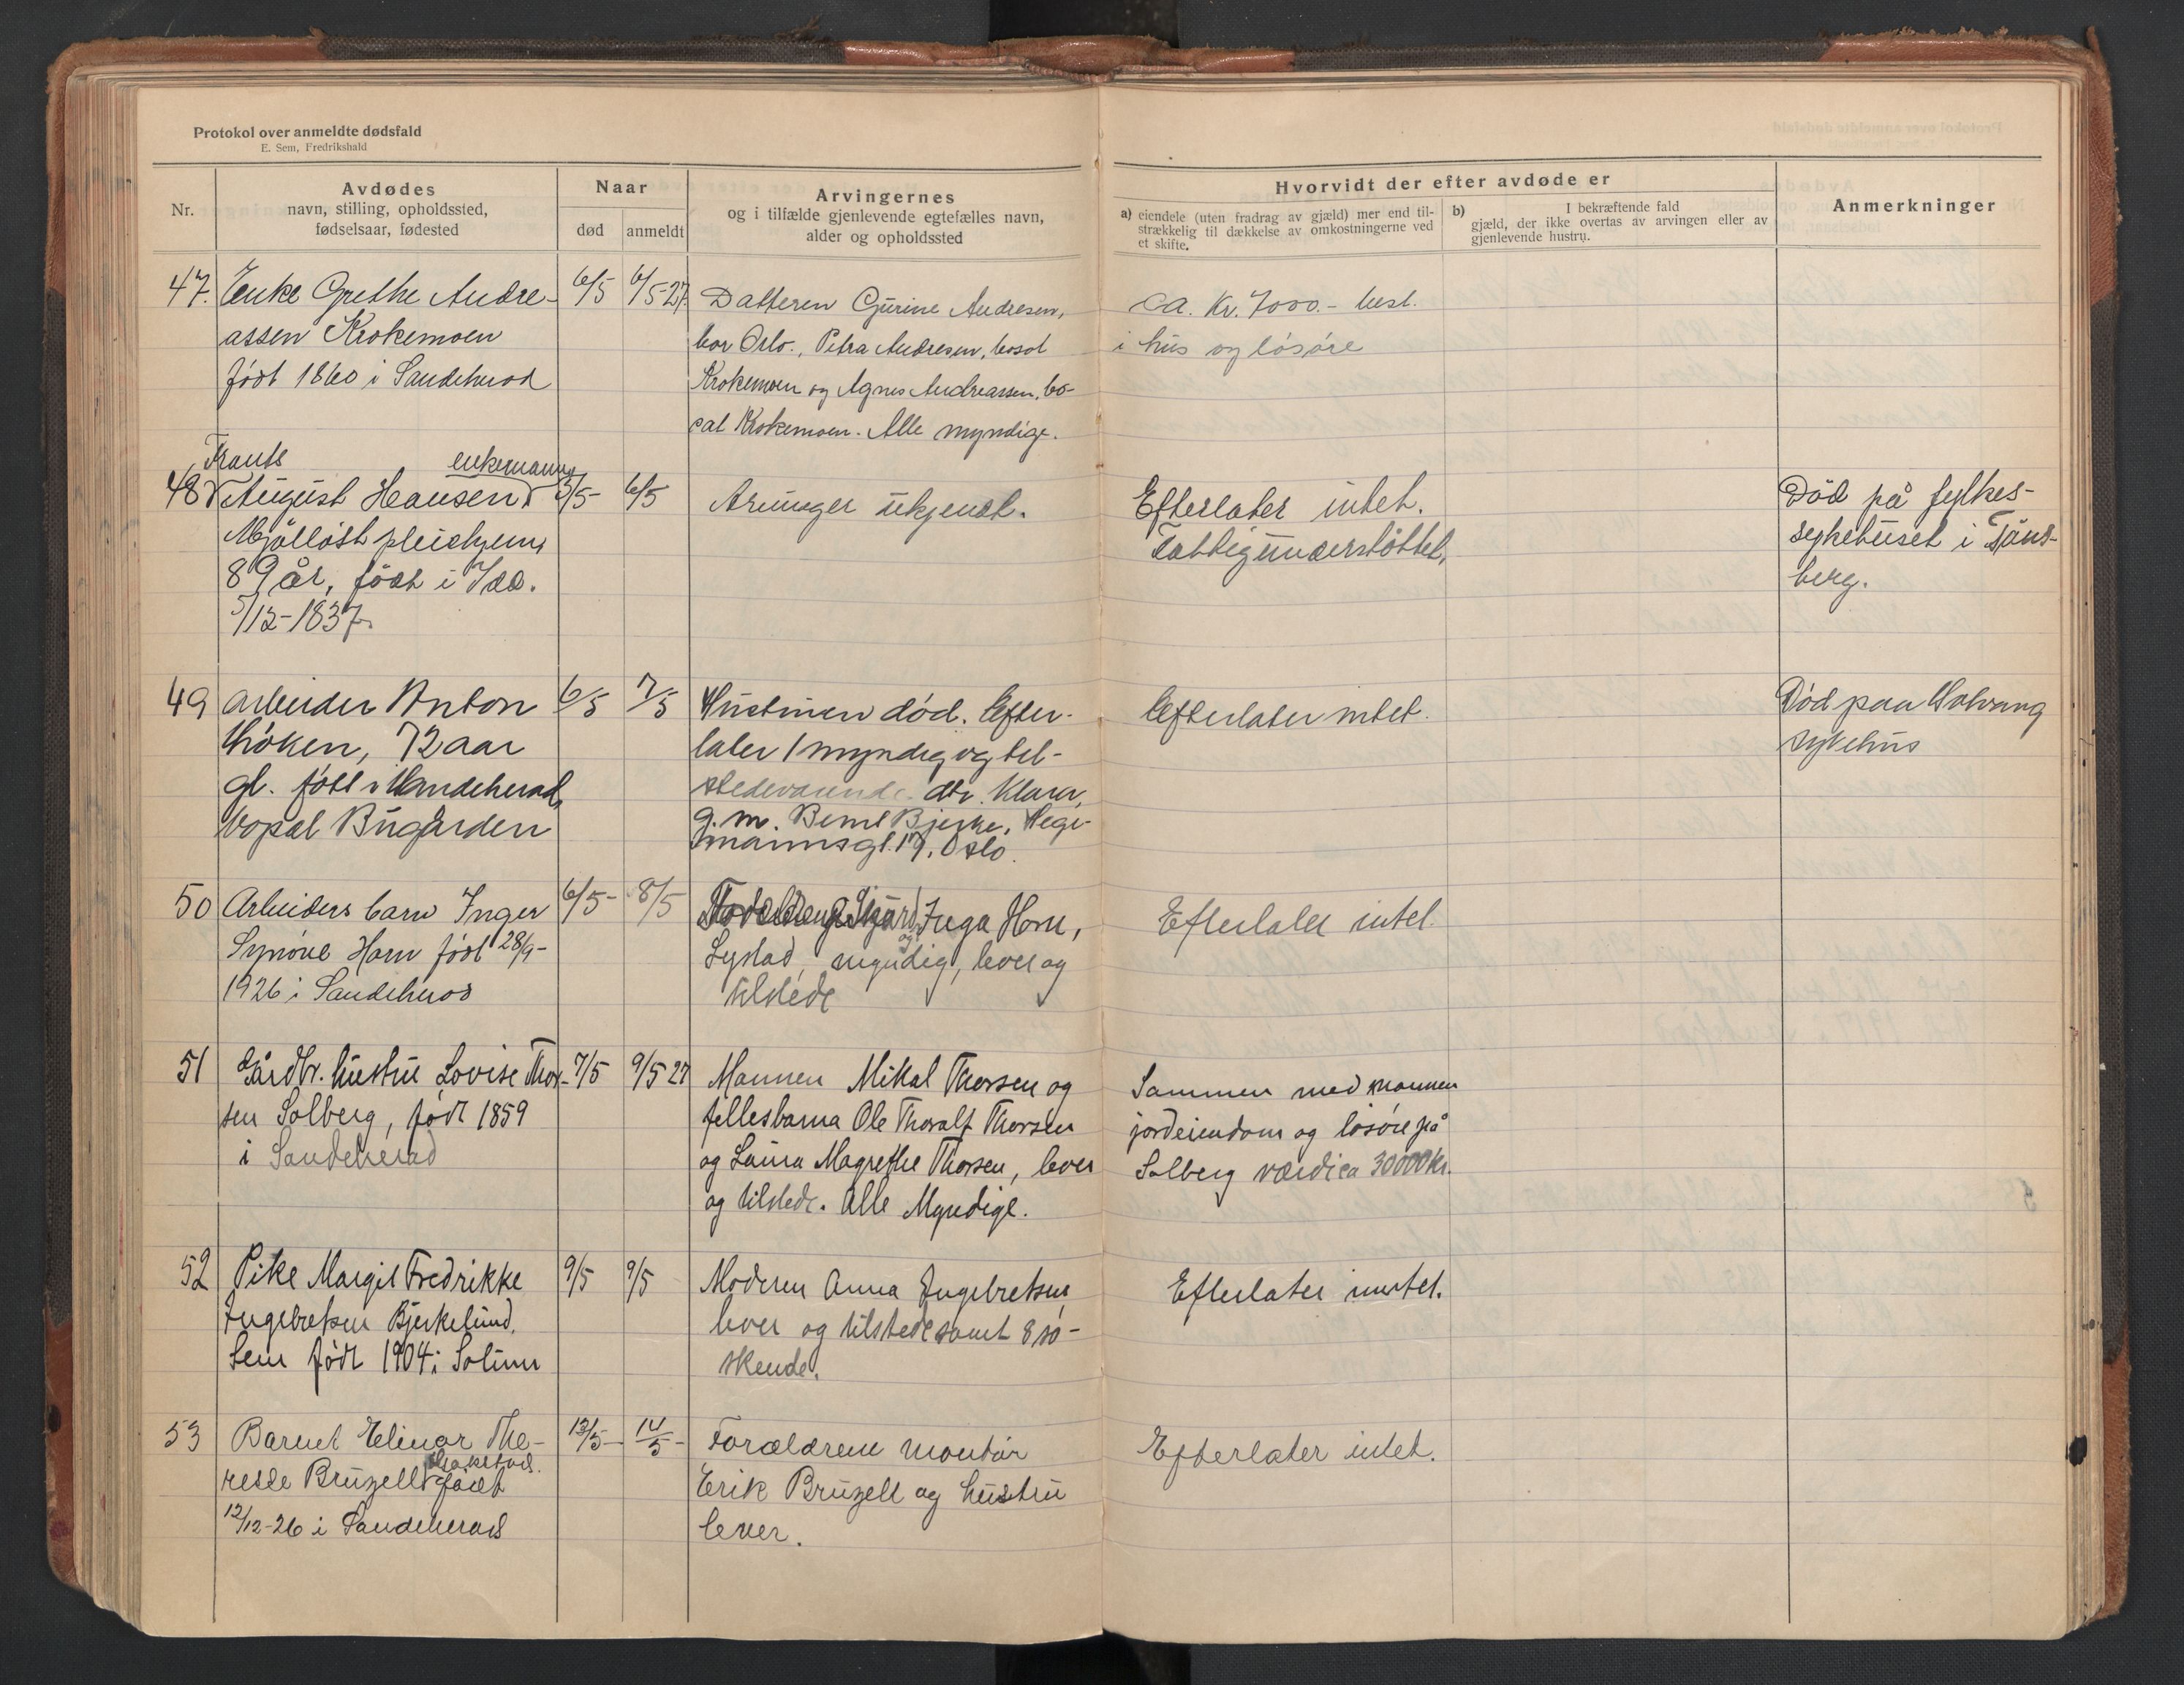 Protokol over anmeldte dødsfald
E. Sem, Fredrikshald
Nr.
Avdødes
navn, stilling, opholdssted,
fødselsaar, fødested
Naar
død
anmeldt
Arvingernes
og i tilfælde gjenlevende egtefælles navn,
alder og opholdssted
Hvorvidt der efter avdøde er
a) eiendele (uten fradrag av gjæld) mer end til-
strækkelig til dækkelse av omkostningerne ved
et skifte.
b) I bekræftende fald
gjæld, der ikke overtas av arvingen eller av
gjenlevende hustru.
Anmerkninger
47. Enke Grethe Andre-
assen Krokemoen
født 1860 i Sandeherad
6/5 6/5 27
Datteren Gurine Andresen,
bor Oslo., Petra Andresen, bosat
Krokemoen og Agnes Andreassen, bo-
sat Krokemoen. Alle myndige.
ca. kr. 7000.- best.
i hus og løsøre
Frants enkemann
48 August Hansen
Mjølløst pleiehjem
89 år, født i Idd.
5/12-1837.
5/5- 6/5
Arvinger ukjendt.
Efterlater intet.
Fattigunderstøttet.
Død på fylkes-
sykehuset i Tøns-
berg.
49 Arbeider Anton
Krøken, 72 aar
gl. født i Sandeherad,
bopæl Bugården
6/5 7/5
Hustruen død. Efter-
later 1 myndig og til-
stedeværende dtr. Klara,
g. m. Bernt Bjerke, Hege-
mannsgt. 17, Oslo.
Efterlater intet.
Død paa Solvang
sykehus
50 Arbeiders barn Inger
Synøve Horn født 28/9-
1926 i Sandeherad
6/5- 8/5
Inga Horn,
og
Lystad, myndig, lever og
tilstede
Efterlater intet.
51 Gårdbr. hustru Lovise Thor-
sen Solberg, født 1859
i Sandeherad
7/5 9/5 27
Mannen Mikal Thorsen og
fellesbarna Ole Thoralf Thorsen
og Laura Magrethe Thorsen, lever
og tilstede. Alle Myndige.
Sammen med mannen
jordeiendom og løsøre på
Solberg værdi ca 30000 kr.
52 Pike Margit Fredrikke
Ingebretsen Bjerkelund,
Sem født 1904 i Solum
9/5 9/5
Moderen Anna Engebretsen
lever og tilstede samt 8 sø-
skende.
Efterlater intet.
53 Barnet Elinor The-
rese Bruzell født
12/12-26 i Sandeherad
13/5- 14/5-
Forældrene montør
Erik Bruzell og hustru
lever.
Efterlater intet.